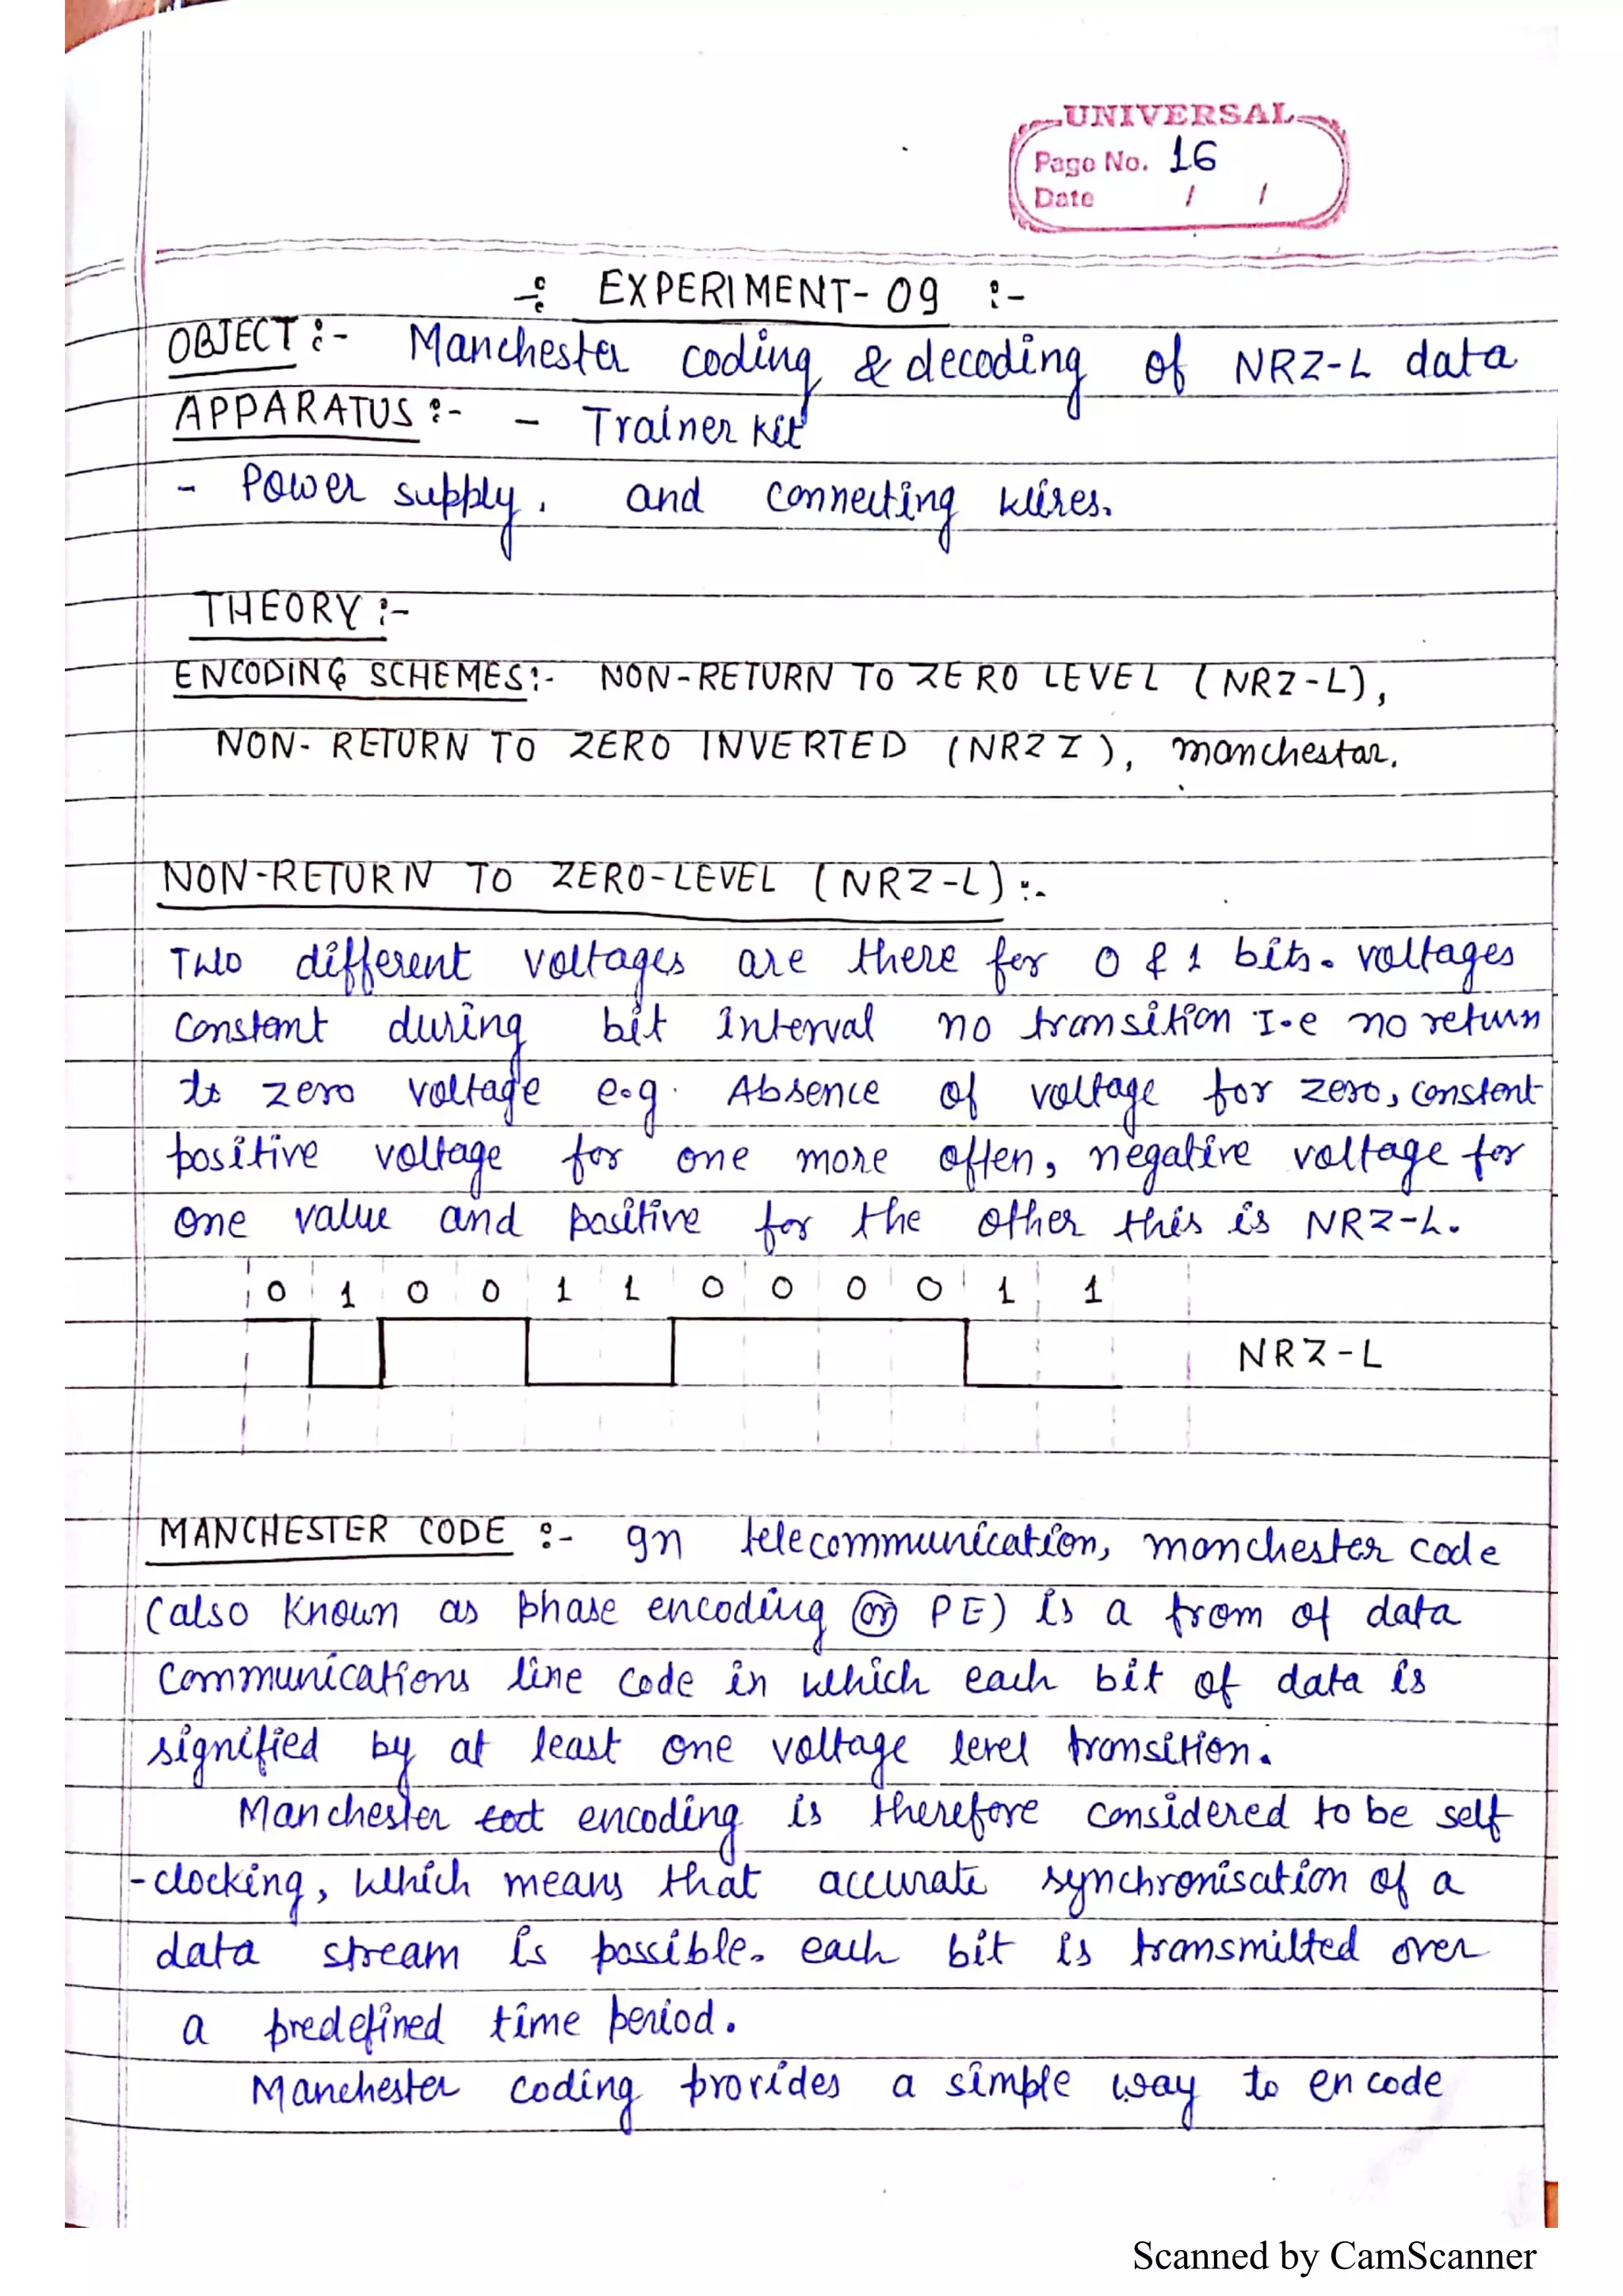 UNIVERSAL
Page No. 16
Date / /
-: EXPERIMENT- 09 :-
OBJECT :- Manchester coding & decoding of NRZ-L data
APPARATUS :- - Trainer kit
- Power supply, and connecting wires.
THEORY :-
ENCODING SCHEMES:- NON-RETURN TO ZERO LEVEL (NRZ-L),
NON- RETURN TO ZERO INVERTED (NRZ I), manchestar.
NON-RETURN TO ZERO-LEVEL (NRZ-L) :-
Two different voltages are there for 0 & 1 bits. voltages
constant during bit interval no transition I.e no return
to zero voltage e.g. Absence of voltage for zero, constant
positive voltage for one more often, negative voltage for
one value and positive for the other this is NRZ-L.
0 1 0 0 1 1 0 0 0 0 1 1
NRZ-L
MANCHESTER CODE :- In telecommunication, manchester code
(also known as phase encoding or PE) is a from of data
communications line code in which each bit of data is
signified by at least one voltage level transition.
Manchester encoding is therefore considered to be self
-clocking, which means that accurate synchronisation of a
data stream is possible. each bit is transmitted over
a predefined time period.
Manchester coding provides a simple way to encode
Scanned by CamScanner